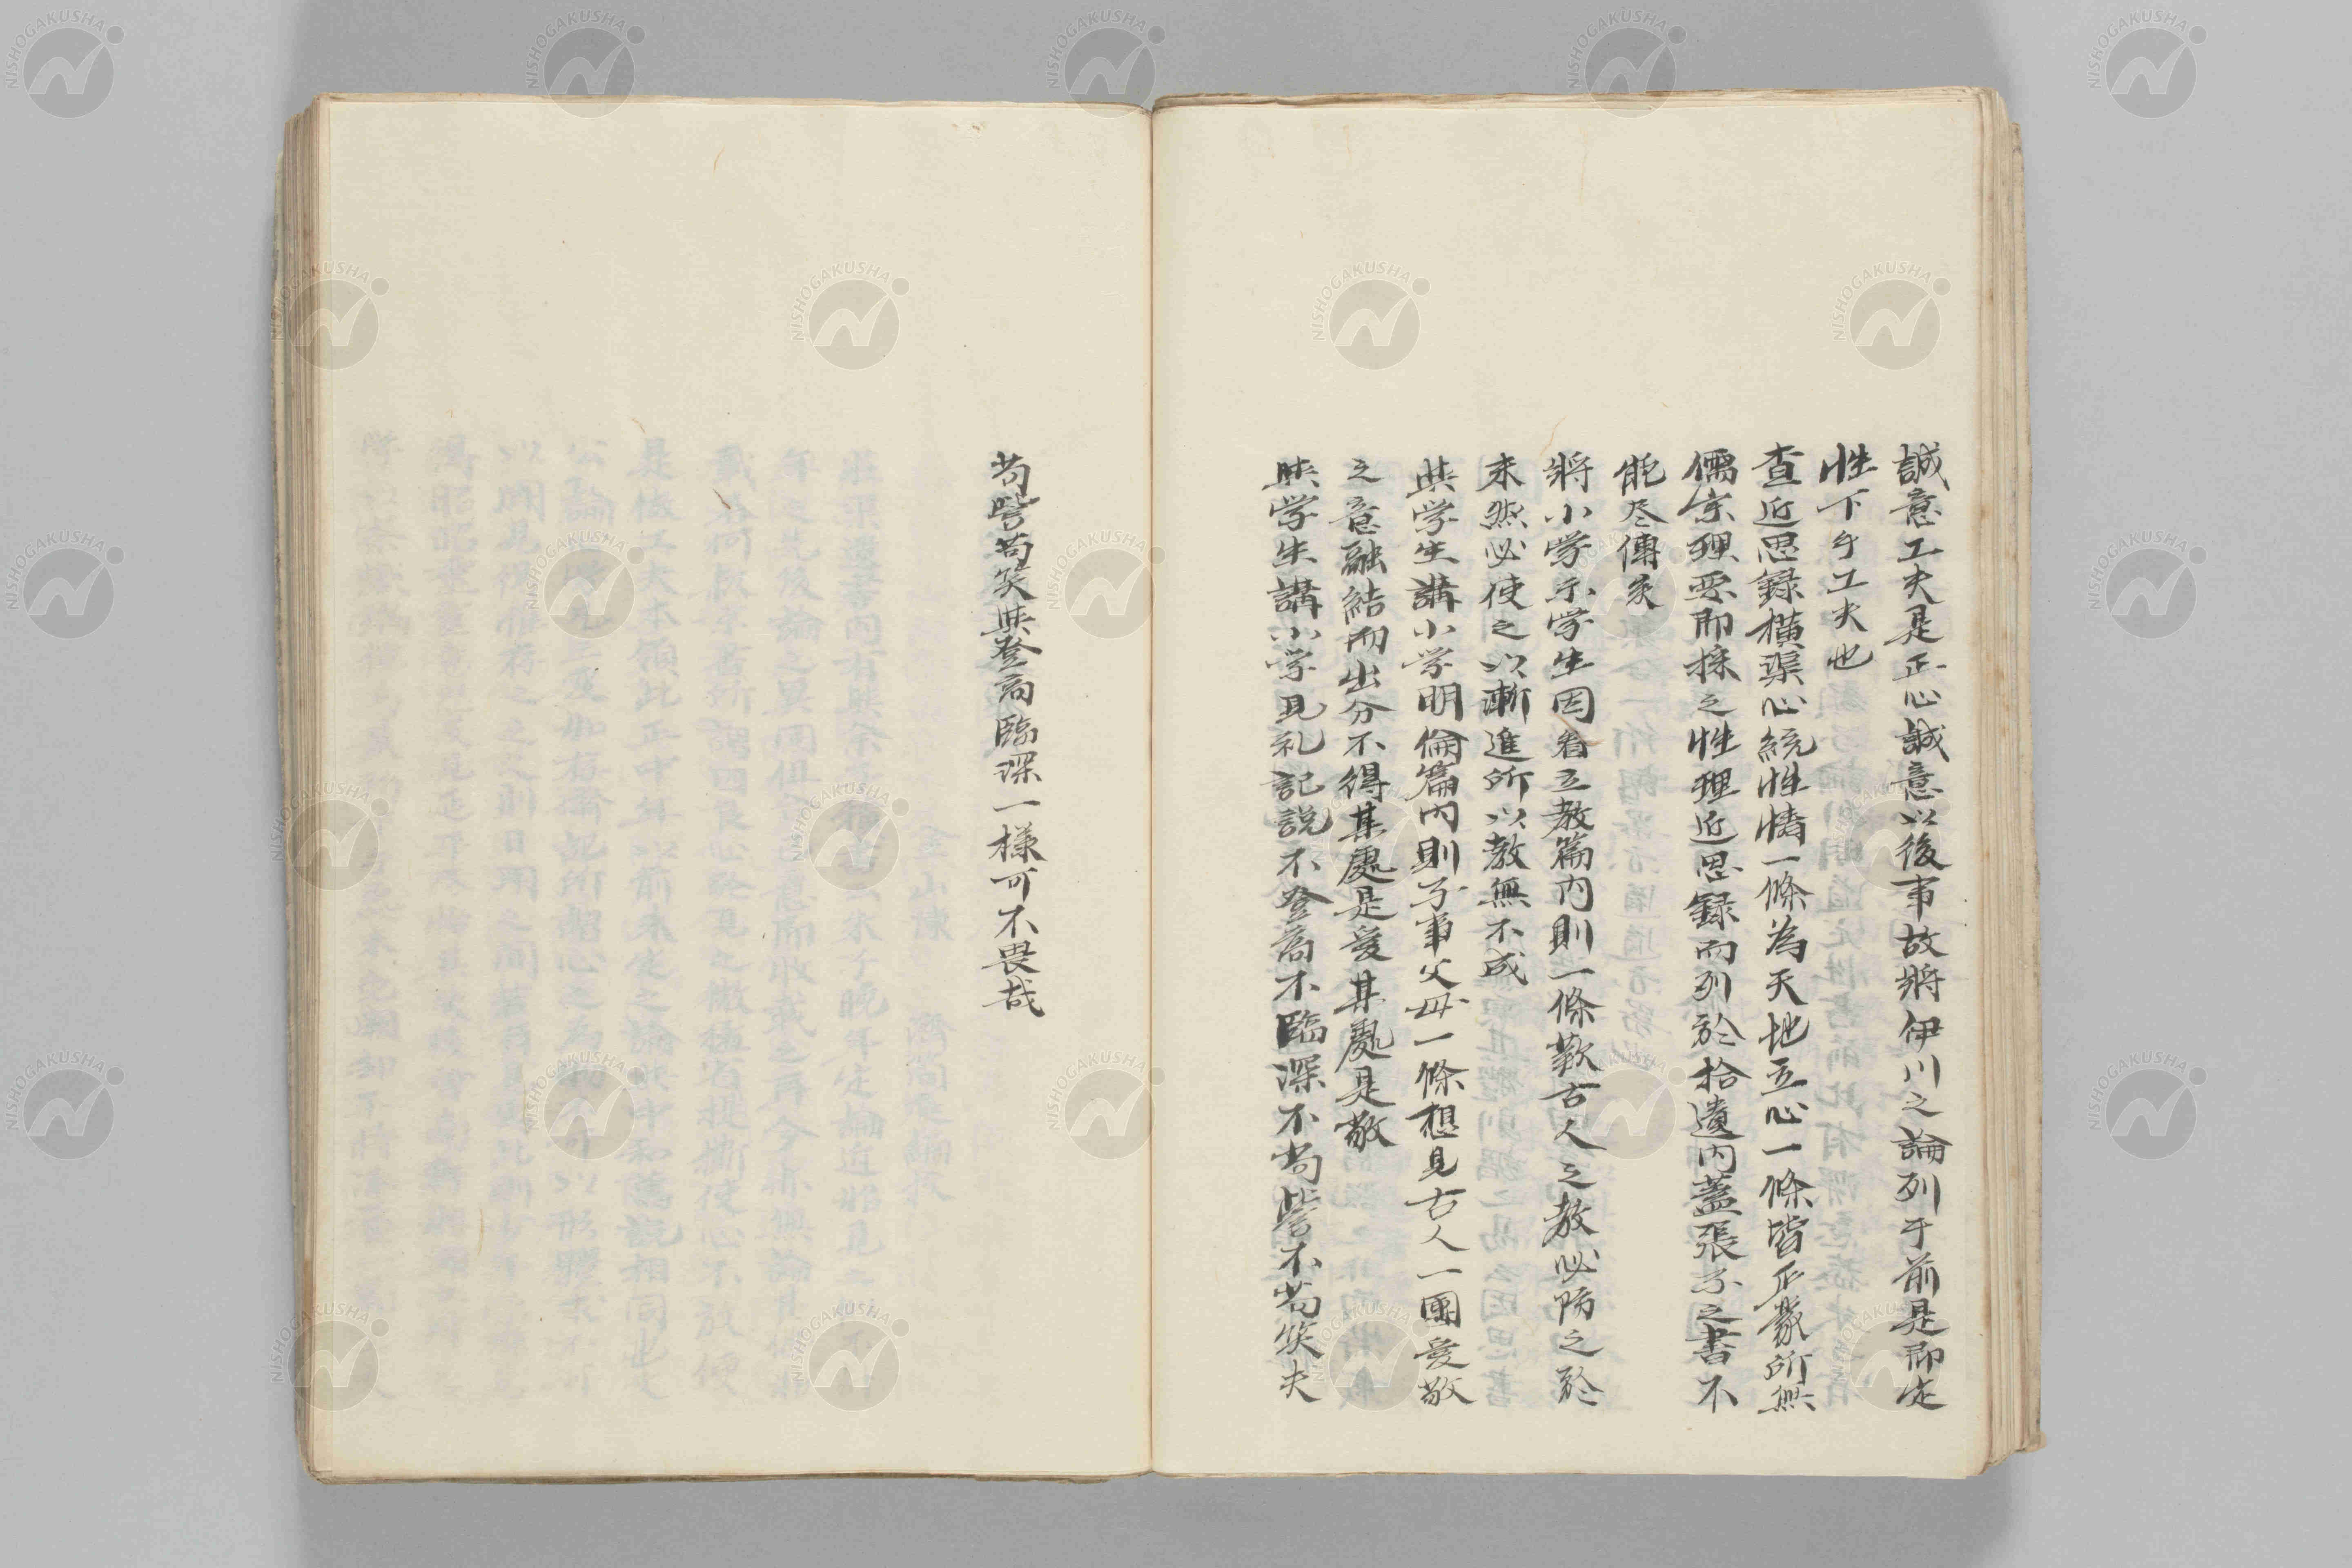 誠意工夫是正心誠意以後事故將伊川之論列于前是即定
性下手工夫也
查近思録横渠心統性情一條為天地立心一條皆正蒙所無
儒宗理要即採之性理近思録而列於拾遺内蓋張子之書不
能尽傳矣
將小学示学生因看立教篇内則一條歎古人之教必防之於
未然必使之以漸進所以教無不成
與学生講小学明倫篇内則子事父母一條想見古人一團愛敬
之意融結而出分不得某處是愛某處是敬
與学生講小学見礼記説不登高不臨深不苟訾不苟笑夫
苟訾苟笑與登高臨深一様可不畏哉
NISHOGAKUSHA